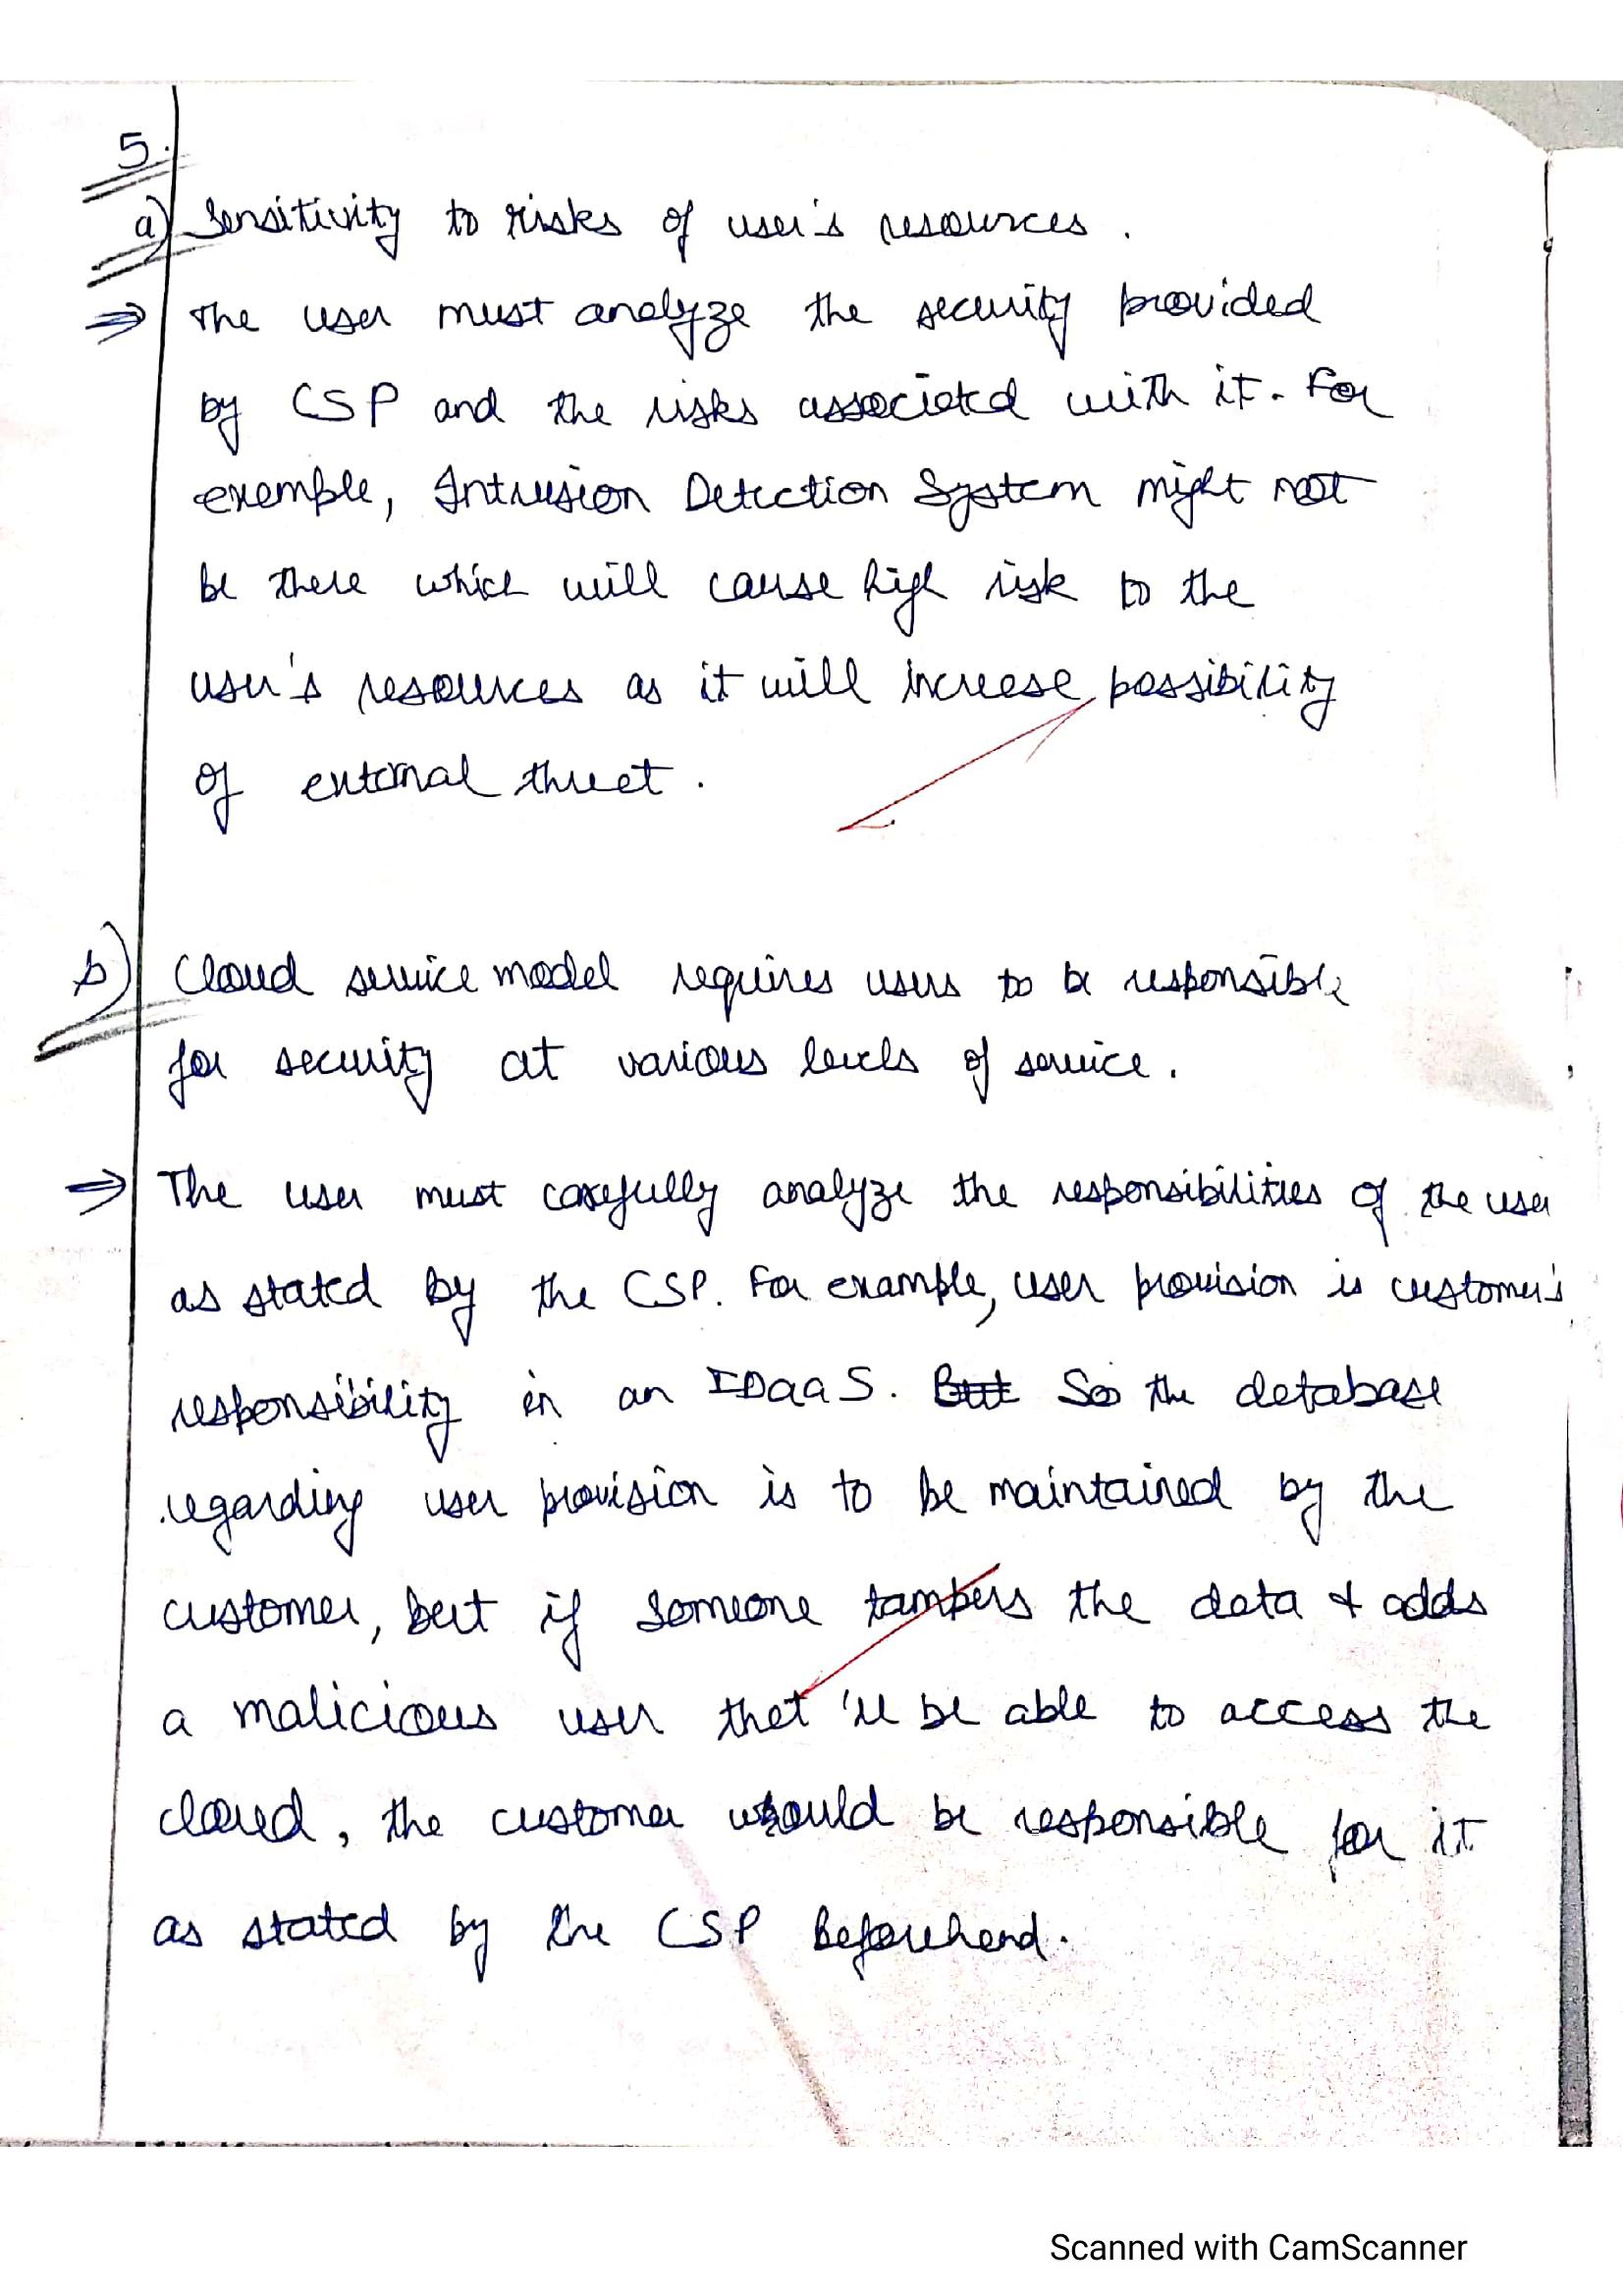 5.
a) Sensitivity to risks of user's resources.
⇒ The user must analyze the security provided
by CSP and the risks associated with it. For
example, Intrusion Detection System might not
be there which will cause high risk to the
user's resources as it will increase possibility
of external threat.
b) Cloud service model requires users to be responsible
for security at various levels of service.
⇒ The user must carefully analyze the responsibilities of the user
as stated by the CSP. For example, user provision is customer's
responsibility in an IDaaS. But So the database
regarding user provision is to be maintained by the
customer, but if someone tampers the data & adds
a malicious user that 'll be able to access the
cloud, the customer would be responsible for it
as stated by the CSP beforehand.
Scanned with CamScanner